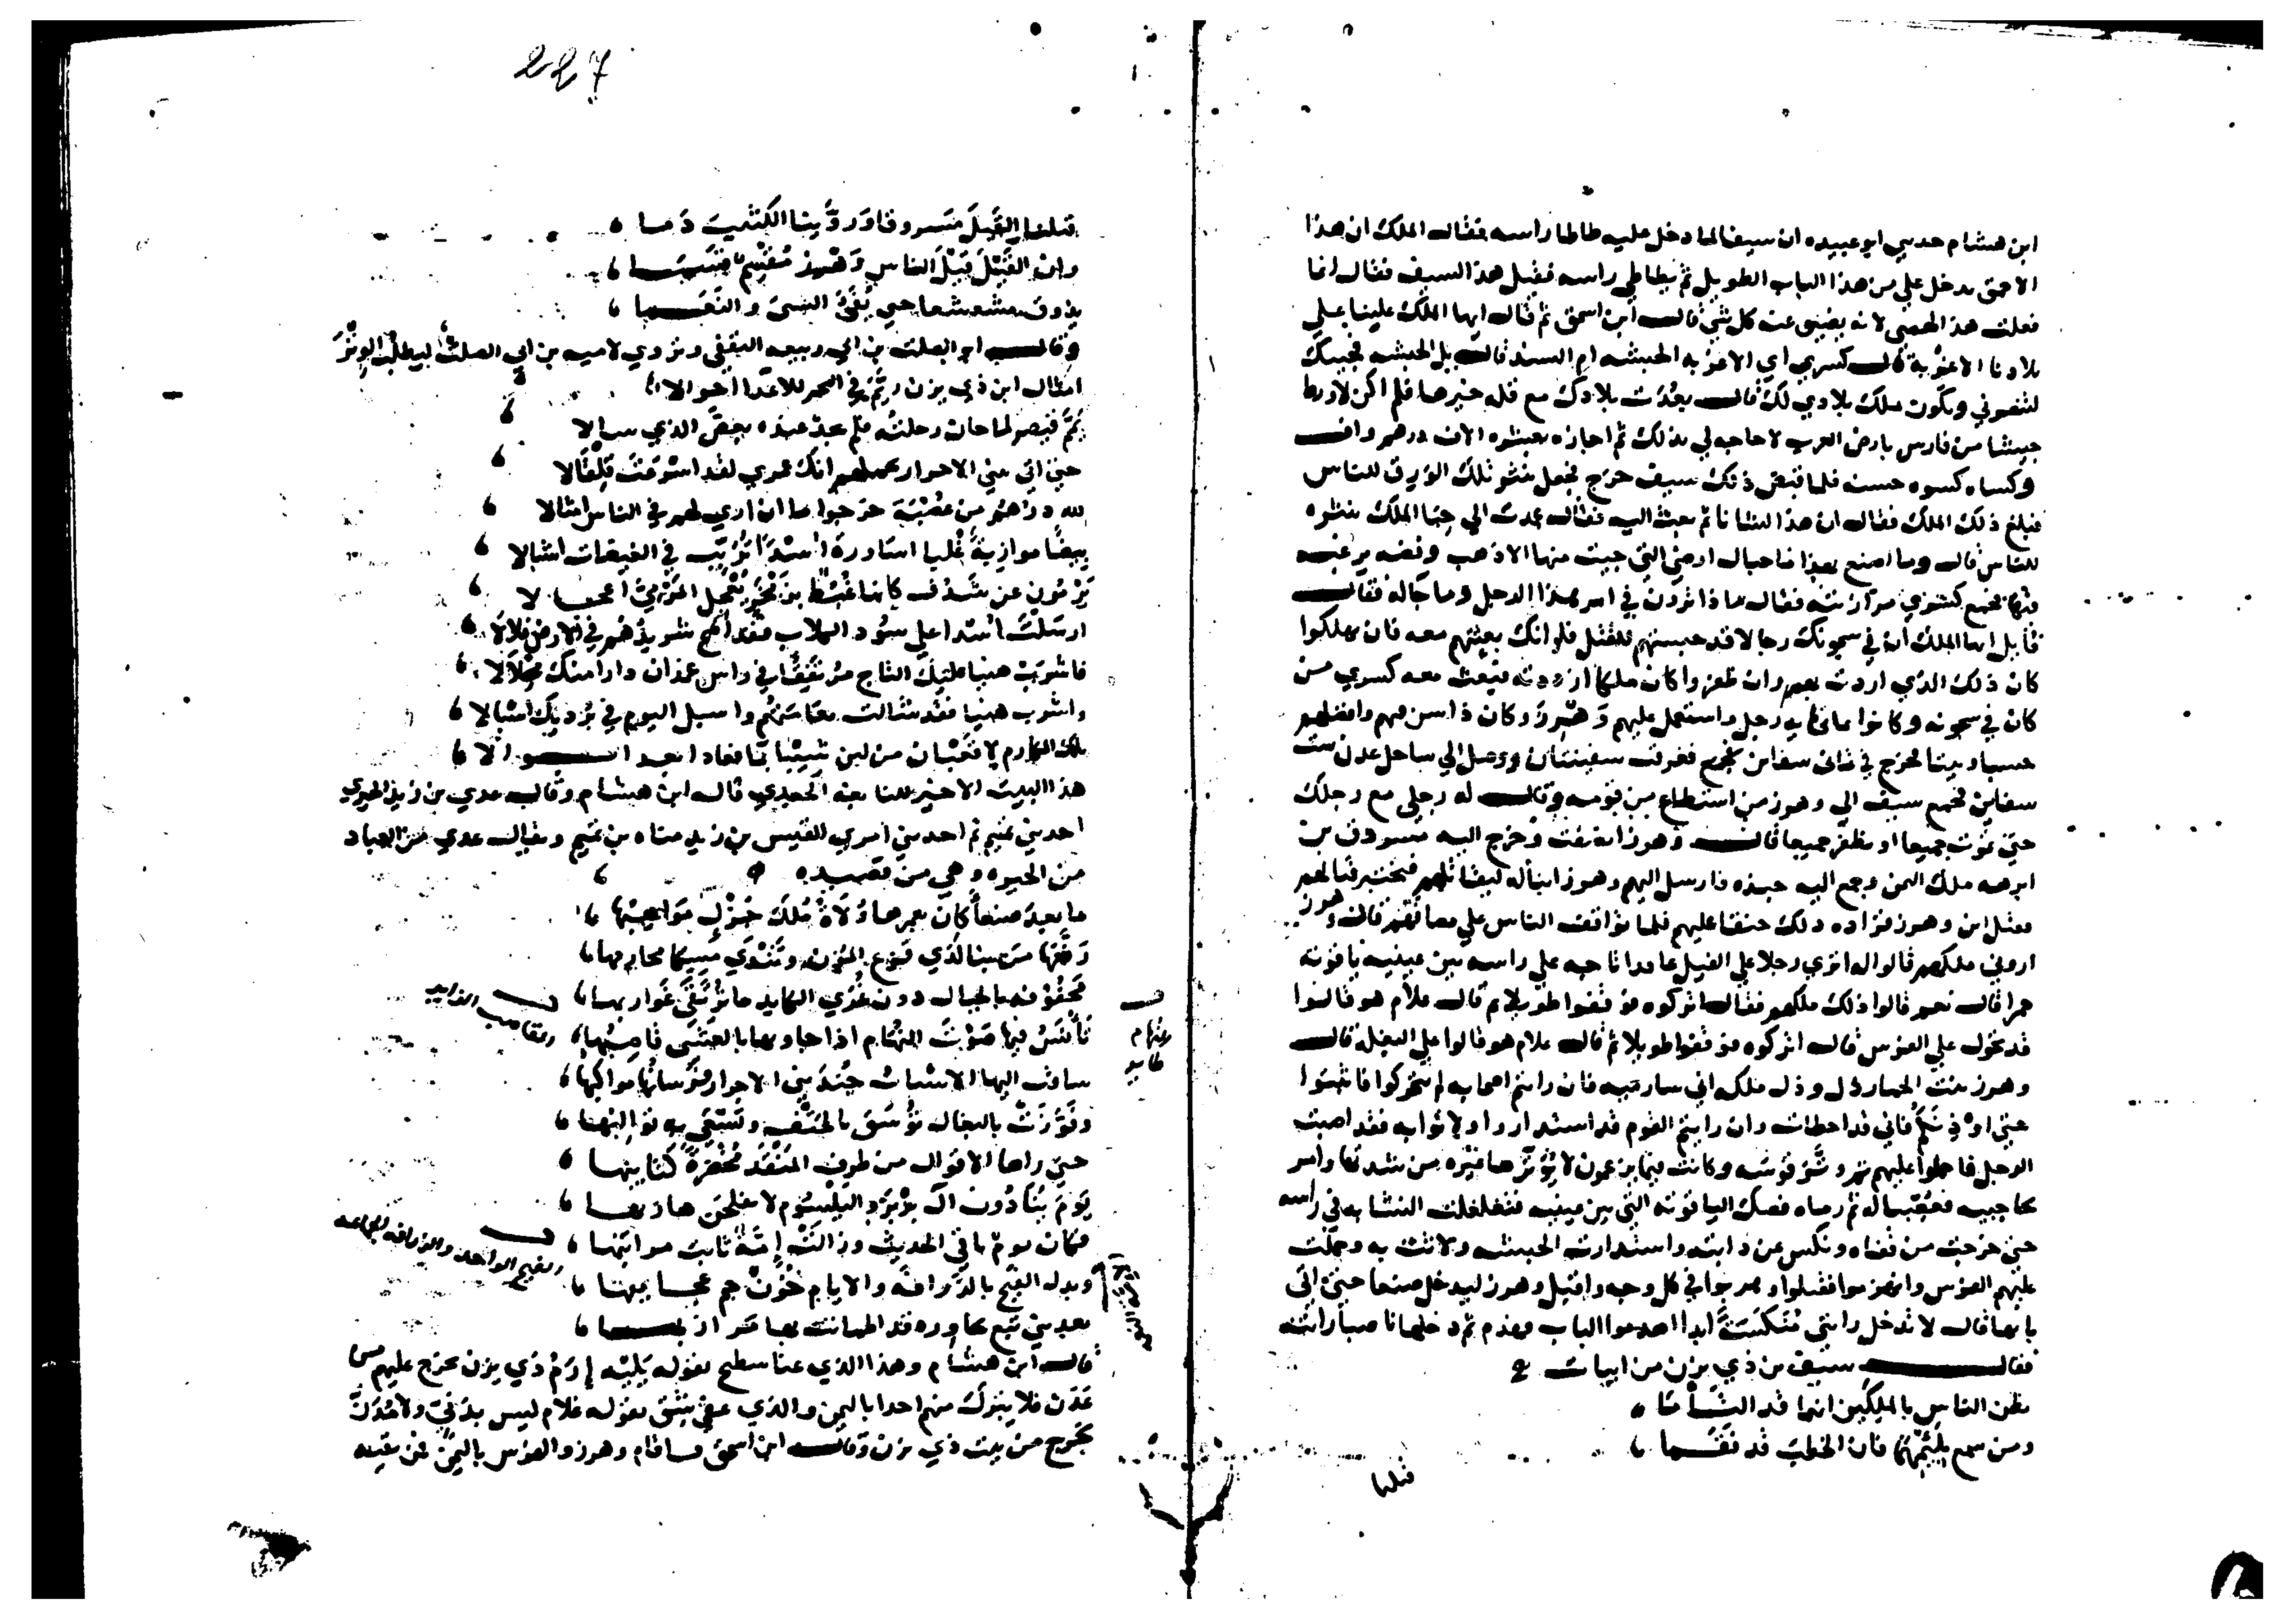 ابن هشام حدثني ابو عبيده ان سيفا لما دخل عليه طاطا راسه فقال الملك ان هذا
الاحمق يدخل علي من هذا الباب الطويل ثم يطاطي راسه فقيل هذا لسيف فقال انما
فعلت هذا لهمي لانه يضيق عنه كل شي قال ابن اسحق ثم قال ايها الملك علينا علي
بلادنا الاغربة قال كسري اي الاغربه الحبشه ام السند قال بل الحبشه فجيتك
لتنصرني ويكون ملك بلادي لك قال بعدت بلادك مع قلة خيرها فلم اكن لاورط
جيشا من فارس بارض العرب لا حاجه لي بذلك ثم اجازه بعشره الاف درهم واف
وكساه كسوه حسنه فلما قبض ذلك سيف خرج فجعل ينثر تلك الورق للناس
فبلغ ذلك الملك فقال ان هذا لشانا ثم بعث اليه فقال عمدت الي حبا الملك تنثره
للناس قال وما اصنع بهذا ما جبال ارضي التي جيت منها الا ذهب وفضه يرغبه
فيها فجمع كسري مرازبته فقال ماذا ترون في امر هذا الرجل وما جا له فقال
قايل ايها الملك ان في سجونك رجالا قد حبستهم للقتل فلو انك بعثتهم معه فان يهلكوا
كان ذلك الذي اردت بهم وان ظفروا كان ملكا ازددته فبعث معه كسري من
كان في سجونه وكانوا ثماني مايه رجل واستعمل عليهم وهرز وكان ذا سن فيهم وافضلهم
حسبا وبيتا فخرج في ثمان سفاين فغرقت سفينتان ووصل الي ساحل عدن ست
سفاين فجمع سيف الي وهرز من استطاع من قومه وقال له رجلي مع رجلك
حتي نموت جميعا او نظفر جميعا قال وهرز انصفت وخرج اليه مسروق بن
ابرهه ملك اليمن وجمع اليه جنده فارسل اليهم وهرز ابنا له ليقاتلهم فيختبر قتالهم
فقتل ابن وهرز فزاده ذلك حنقا عليهم فلما تواقف الناس علي مصافهم قال وهرز
اروني ملكهم قالوا له اتري رجلا علي الفيل عاقدا تاجه علي راسه بين عينيه ياقوته
حمرا قال نعم قالوا ذلك ملكهم فقال اتركوه فوقفوا طويلا ثم قال علام هو قالوا
قد تحول علي الفرس قال اتركوه فوقفوا طويلا ثم قال علام هو قالوا علي البغله قال
وهرز بنت الحمار ذل وذل ملكه اني سارميه فان رايتم اصحابه لم يتحركوا فاثبتوا
حتي اوذنكم فاني قد اخطات وان رايتم القوم قد استداروا ولاثوا به فقد اصبت
الرجل فاحملوا عليهم ثم وتر قوسه وكانت فيما يزعمون لا يوترها غيره من شدتها وامر
بحاجبيه فعصبا له ثم رماه فصك الياقوته التي بين عينيه فتغلغلت النشابه في راسه
حتي خرجت من قفاه ونكس عن دابته واستدارت الحبشه ولاثت به وحملت
عليهم الفرس وانهزموا فقتلوا وهربوا في كل وجه واقبل وهرز ليدخل صنعا حتي اتي
بابها قال لا تدخل رايتي منتكسة ابدا اهدموا الباب فهدم ثم دخلها ناصبا رايته
فقال سيف بن ذي يزن من ابيات
يظن الناس بالملكين انهما قد التاما
ومن سمع بلئمهما فان الخطب قد فقما
قتلنا
227
قتلنا القيل مسروقا وروينا الكثيب دما
وان القيل قيل الناس وهرز مقسم قسما
يذوق مشعشعا حتي يفئ السبي والنعما
وقال ابو الصلت بن ابي ربيعه الثقفي وتروي لاميه بن ابي الصلت ليطلب الوتر
امثال ابن ذي يزن ريم في البحر للاعدا احوالا
يمم قيصر لما حان رحلته فلم يجد عنده بعض الذي سالا
حتي اتي ببني الاحرار يحملهم انك عمري لقد اسرعت قلقالا
لله درهم من عصبة خرجوا ما ان اري لهم في الناس امثالا
بيضا مرازبة غلبا اساورة اسدا تربب في الغيضات اشبالا
يرمون عن شدف كانها غبط بزمخر يعجل المرمي اعجالا
ارسلت اسدا علي سود الكلاب فقد اضحي شريدهم في الارض فلالا
فاشرب هنيا عليك التاج مرتفقا في راس غمدان دارا منك محلالا
واشرب هنيا فقد شالت نعامتهم واسبل اليوم في برديك اسبالا
تلك المكارم لا قعبان من لبن شيبا بما فعادا بعد ابوالا
هذا البيت الاخير للنابغه الجعدي قاله ابن هشام وقال عدي بن زيد الحيري
احد بني تميم ثم احد بني امري القيس بن زيد مناه بن تميم ويقال عدي من العباد
من الحيره وهي من قصيده
ما بعد صنعا كان يعمرها ولاة ملك جزل مواهبها
رفعها من بنا لذي قزع المزن وتندي مسكا محاربها
محفوفه بالجبال دون عري الكايد ما ترتقي غواربها
يانس فيها صوت النهام اذا جاوبها بالعشي قاصبها
ساقت اليها الاسباب جند بني الاحرار فرسانها مواكبها
وفوزت بالبغال توسق بالحتف وتسعي بها توالبها
حتي راها الاقوال من طرف المنقل مخضرة كتايبها
يوم ينادون ال بربر واليكسوم لا يفلحن هاربها
فكان يوم باقي الحديث وزالت امة ثابت مراتبها
وبدل الفيج بالزرافه والايام خون جم عجايبها
بعد بني تبع نخاوره قد اطمانت بها مرازبها
قال ابن هشام وهذا الذي عنا سطيح بقوله يليه ارم ذي يزن يخرج عليهم من
عدن فلا يترك منهم احدا باليمن والذي عني شق بقوله غلام ليس بدني ولا مدن
يخرج من بيت ذي يزن وقال ابن اسحق فاقام وهرز والفرس باليمن فمن بقيه